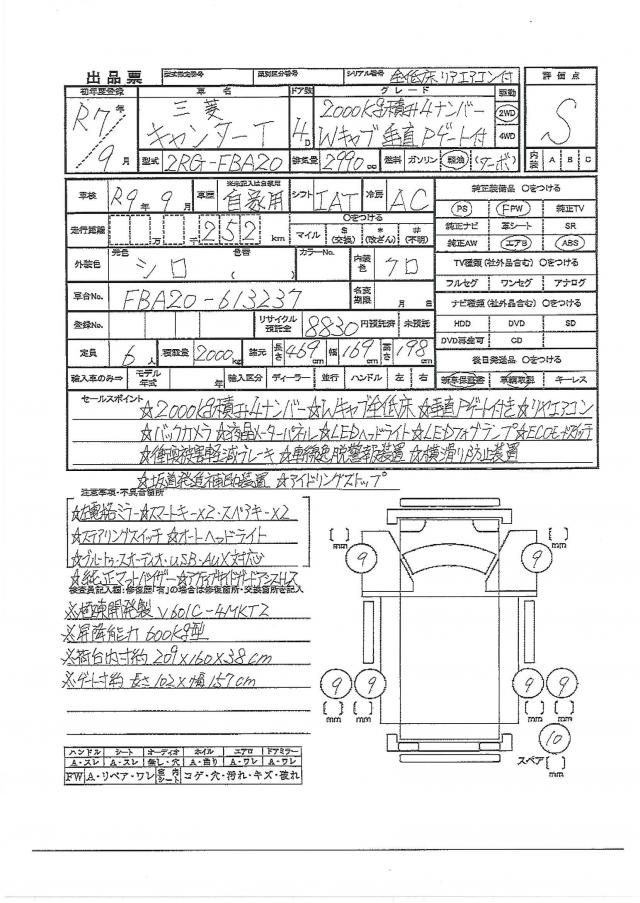 出品票 型式指定番号 類別区分番号 シリアル番号 全低床リアエアコン付 評価点
初年度登録 車名 ドア数 グレード 駆動
R7年 三菱 2000kg積み4ナンバー 2WD S
キャンターT 4D Wキャブ垂直Pゲート付 4WD
9月 型式 2RG-FBA20 排気量 2990cc 燃料 ガソリン 軽油 (ターボ) 内装 A B C
車検 R9年 9月 車歴 自家用 シフト IAT 冷房 AC 純正装備品 ○をつける
PS PW 純正TV
走行距離 万 千 252 km ○をつける
マイル $(交換) *(改ざん) #(不明) 純正ナビ 革シート SR
純正AW エアB ABS
外装色 元色 シロ 色替 ( ) カラーNo. 内装色 クロ TV種類(社外品含む)○をつける
フルセグ ワンセグ アナログ
車台No. FBA20-613237 名変期限 月 日 ナビ種類(社外品含む)○をつける
登録No. リサイクル預託金 8830 円預託済 未預託 HDD DVD SD
DVD再生可 CD
定員 6人 積載量 2000kg 諸元 長さ 469cm 幅 169cm 高さ 198cm 後日発送品 ○をつける
輸入車のみ⇒ モデル年式 年 輸入区分 ディーラー 並行 ハンドル 左 右 新車保証書 車輌取説 キーレス
セールスポイント
☆2000kg積み4ナンバー☆Wキャブ全低床☆垂直Pゲート付き☆リヤエアコン
☆バックカメラ☆液晶メーターパネル☆LEDヘッドライト☆LEDフォグランプ☆ECOモード走行
☆衝突被害軽減ブレーキ☆車線逸脱警報装置☆横滑り防止装置
☆坂道発進補助装置☆アイドリングストップ
注意事項・不具合箇所
☆左電格ミラー☆スマートキー×2・スペアキー×2
☆ステアリングスイッチ☆オートヘッドライト
☆ブルートゥースオーディオ・USB・AUX対応
☆純正マットバイザー☆アクティブサイドガードアシスト
検査員記入欄:修復歴「有」の場合は修復箇所・交換箇所を記入
※極東開発製 V601C-4MKT2
※昇降能力600kg型
※荷台内寸約209×160×38cm
※ゲート寸約 長さ102×幅157cm
[ ]
mm
9
[ ]
mm
9
9 9 9 9
[ ] [ ] [ ] [ ]
mm mm mm mm
10
スペア[ ]
mm
ハンドル シート オーディオ ホイル エアロ ドアミラー
A・スレ A・スレ 無し・穴 A・曲り A・ワレ A・ワレ
FW A・リペア・ワレ 室内シート コゲ・穴・汚れ・キズ・破れ